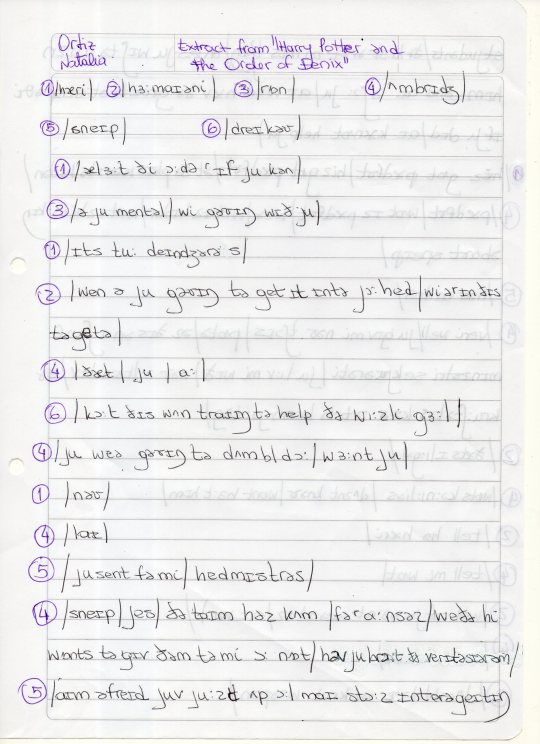 Ortiz Extract from "Harry Potter and
Natalia. the Order of Fenix"
① /hæri/ ② /hɜ:maɪəni/ ③ /rɒn/ ④ /ʌmbrɪdʒ/
⑤ /sneɪp/ ⑥ /dreɪkəʊ/
① /ælɜ:t ði ɔ:də ʳɪf ju kən/
③ /ə ju mentəl/ wi gəʊɪŋ wɪð ju/
① /ɪts tu: deɪndʒərəs/
② /wen ə ju gəʊɪŋ tə get ɪt ɪntə jɔ: hed/ wi ər ɪn ðɪs
təgeðə/
④ /ðæt/ ju / a:/
⑥ /kɔ:t ðɪs wʌn traɪɪŋ tə help ðə wi:zlɪ gɜ:l/
④ /ju weə gəʊɪŋ tə dʌmbldɔ:/ wɜ:nt ju/
① /nəʊ/
④ /laɪ/
⑤ /ju sent fə mi/ hedmɪstrəs/
④ /sneɪp/ jes/ ðə taɪm həz kʌm /fəʳ a:nsəz/ weðə hi
wɒnts tə gɪv ðəm tə mi ɔ: nɒt/ həv ju brɔ:t ðə verɪtəsɪərəm/
⑤ /aɪm əfreɪd juv ju:zd ʌp ɔ:l maɪ stɔ:z ɪnterəgeɪtɪŋ